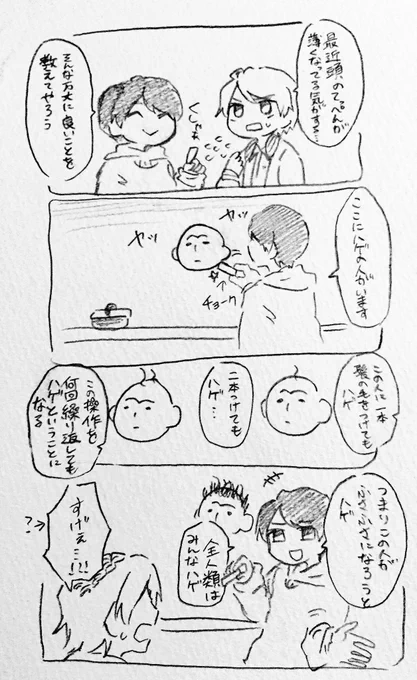 最近頭のてっぺんが
薄くなってる気がする…
くしゃぁ
そんな万大に良いことを
教えてやろう
ここにハゲの人がいます
ヤッ
ヤッ
チョーク
この人に一本
髪の毛をつけても
ハゲ
二本つけても
ハゲ…
この操作を
何回繰り返しても
ハゲということに
なる
つまりこの人が
ふさふさになろうと
ハゲ
全人類は
みんなハゲ
すげぇ…!!!
?→